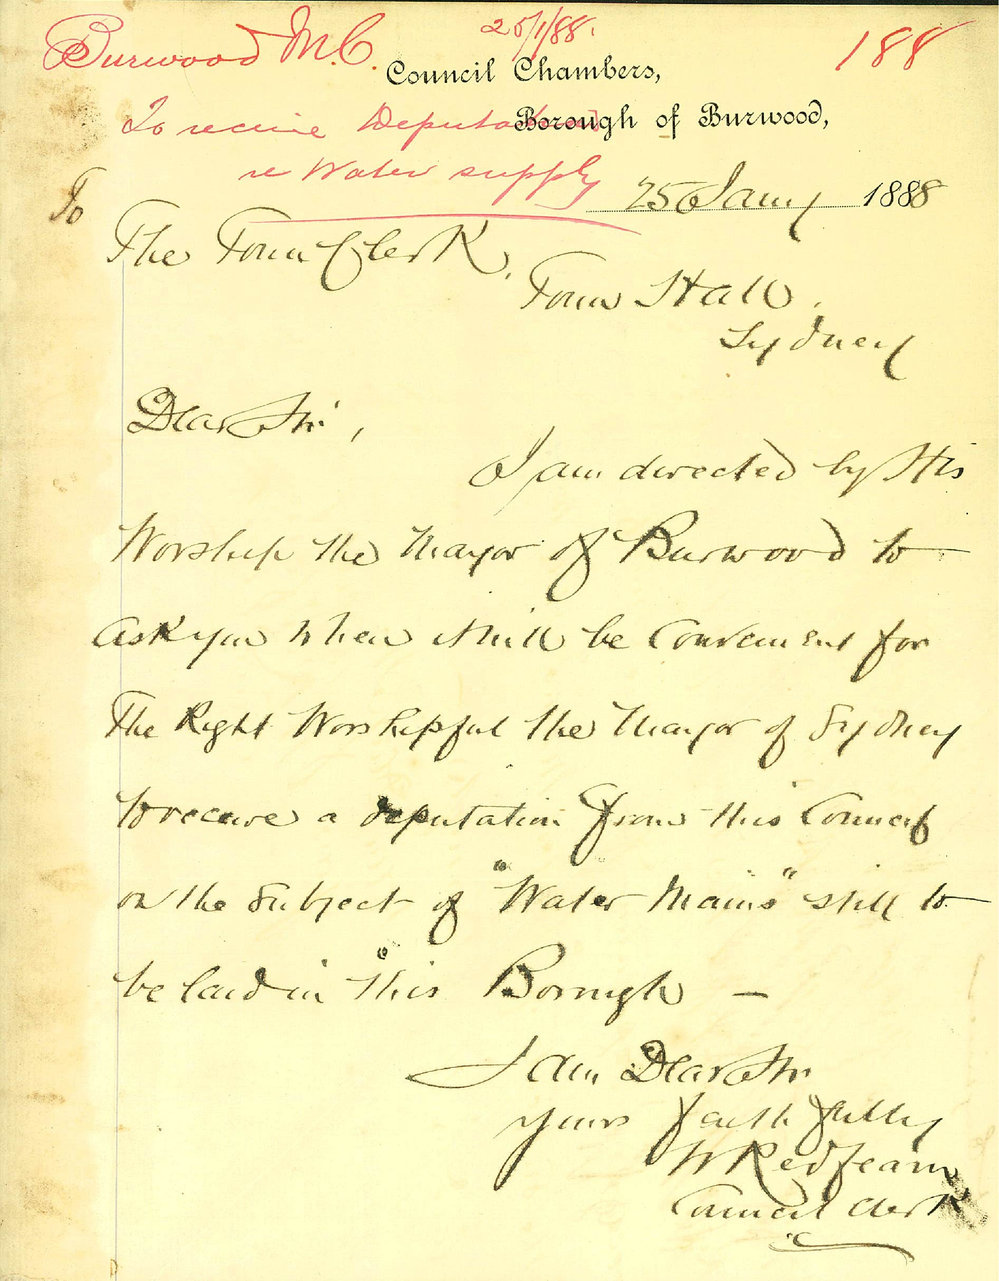 Burwood M.C. 25/1/88. 188
Council Chambers,
To receive Deputation Borough of Burwood,
re Water supply
25 Jany 1888
To
The Town Clerk,
Town Hall.
Sydney
Dear Sir,
I am directed by His
Worship the Mayor of Burwood to
ask you when it will be Convenient for
The Right Worshipful the Mayor of Sydney
to receive a deputation from this Council
on the Subject of "Water Mains" still to
be laid in "this Borough —
I am Dear Sir
yours faithfully
W Redfearn
Council Clerk